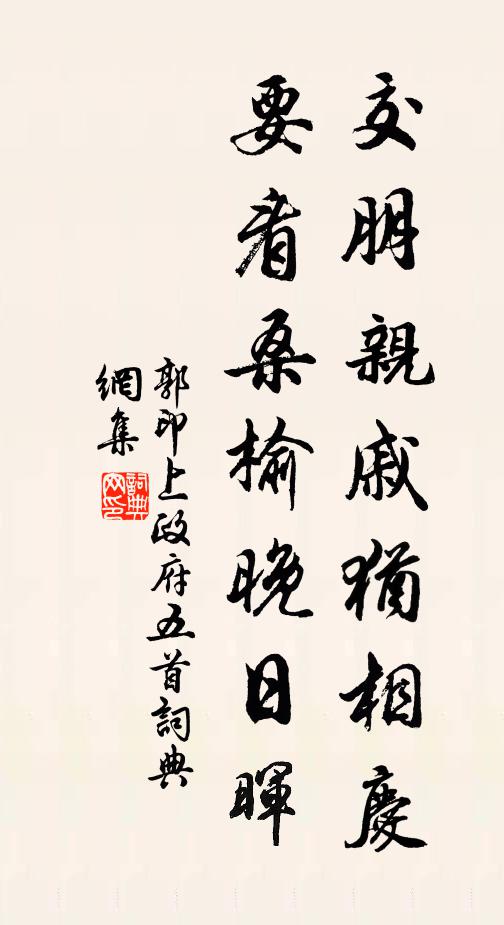 交朋親戚猶相慶
要看桑榆晚日暉
郭印上政府五首詞典
網集
詞典網印